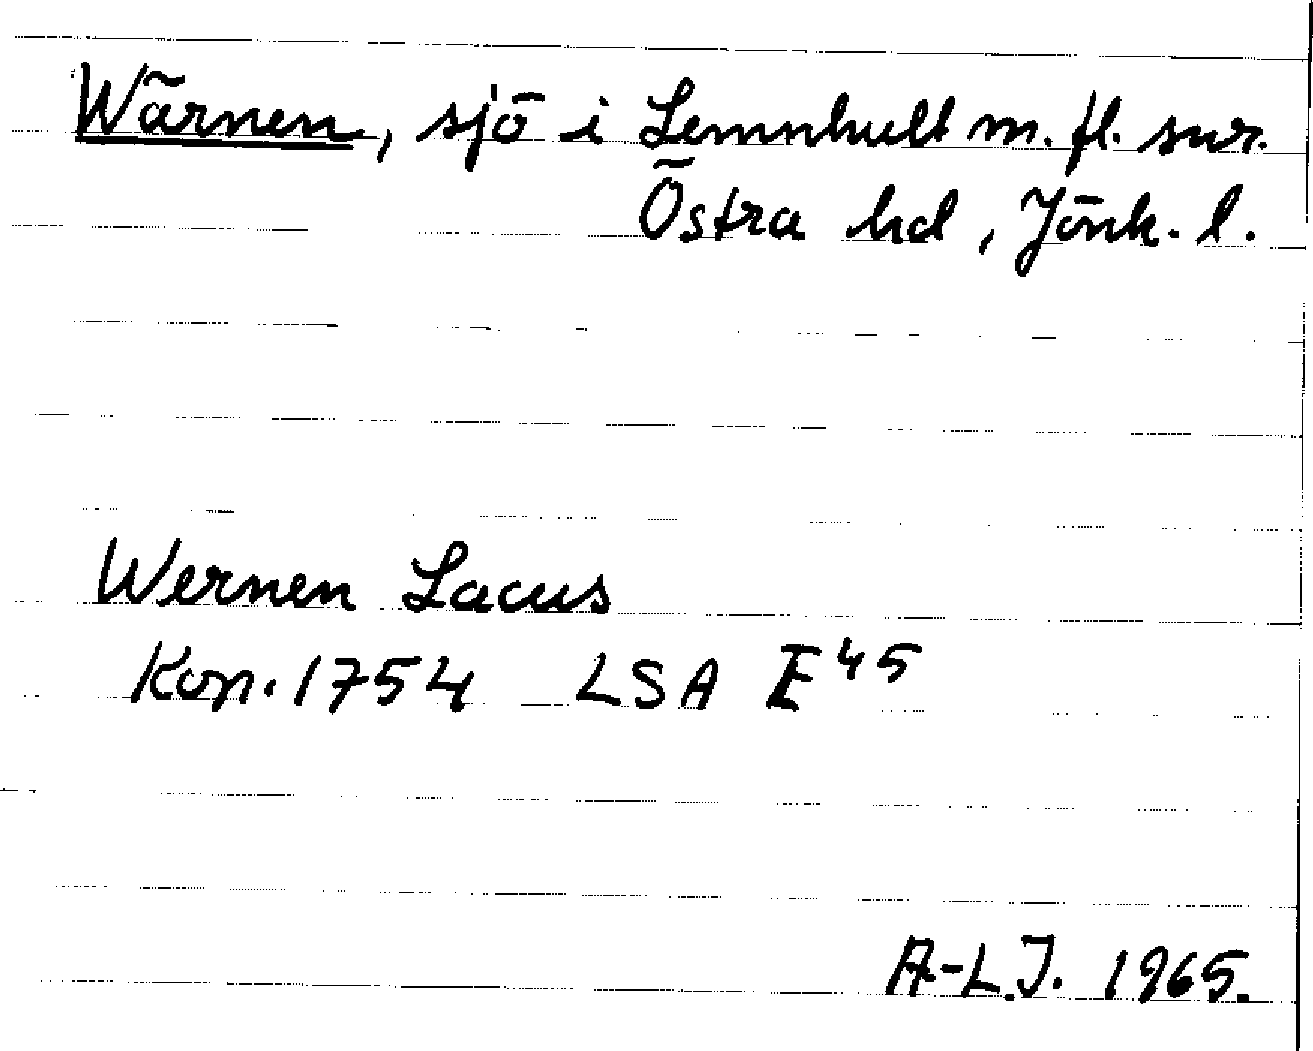 Wärnen, sjö i Lemnhult m. fl. snr.
Östra hd, Jönk. l.
Wernen Lacus
Kop. 1754 LSA E45
A-L.J. 1965.